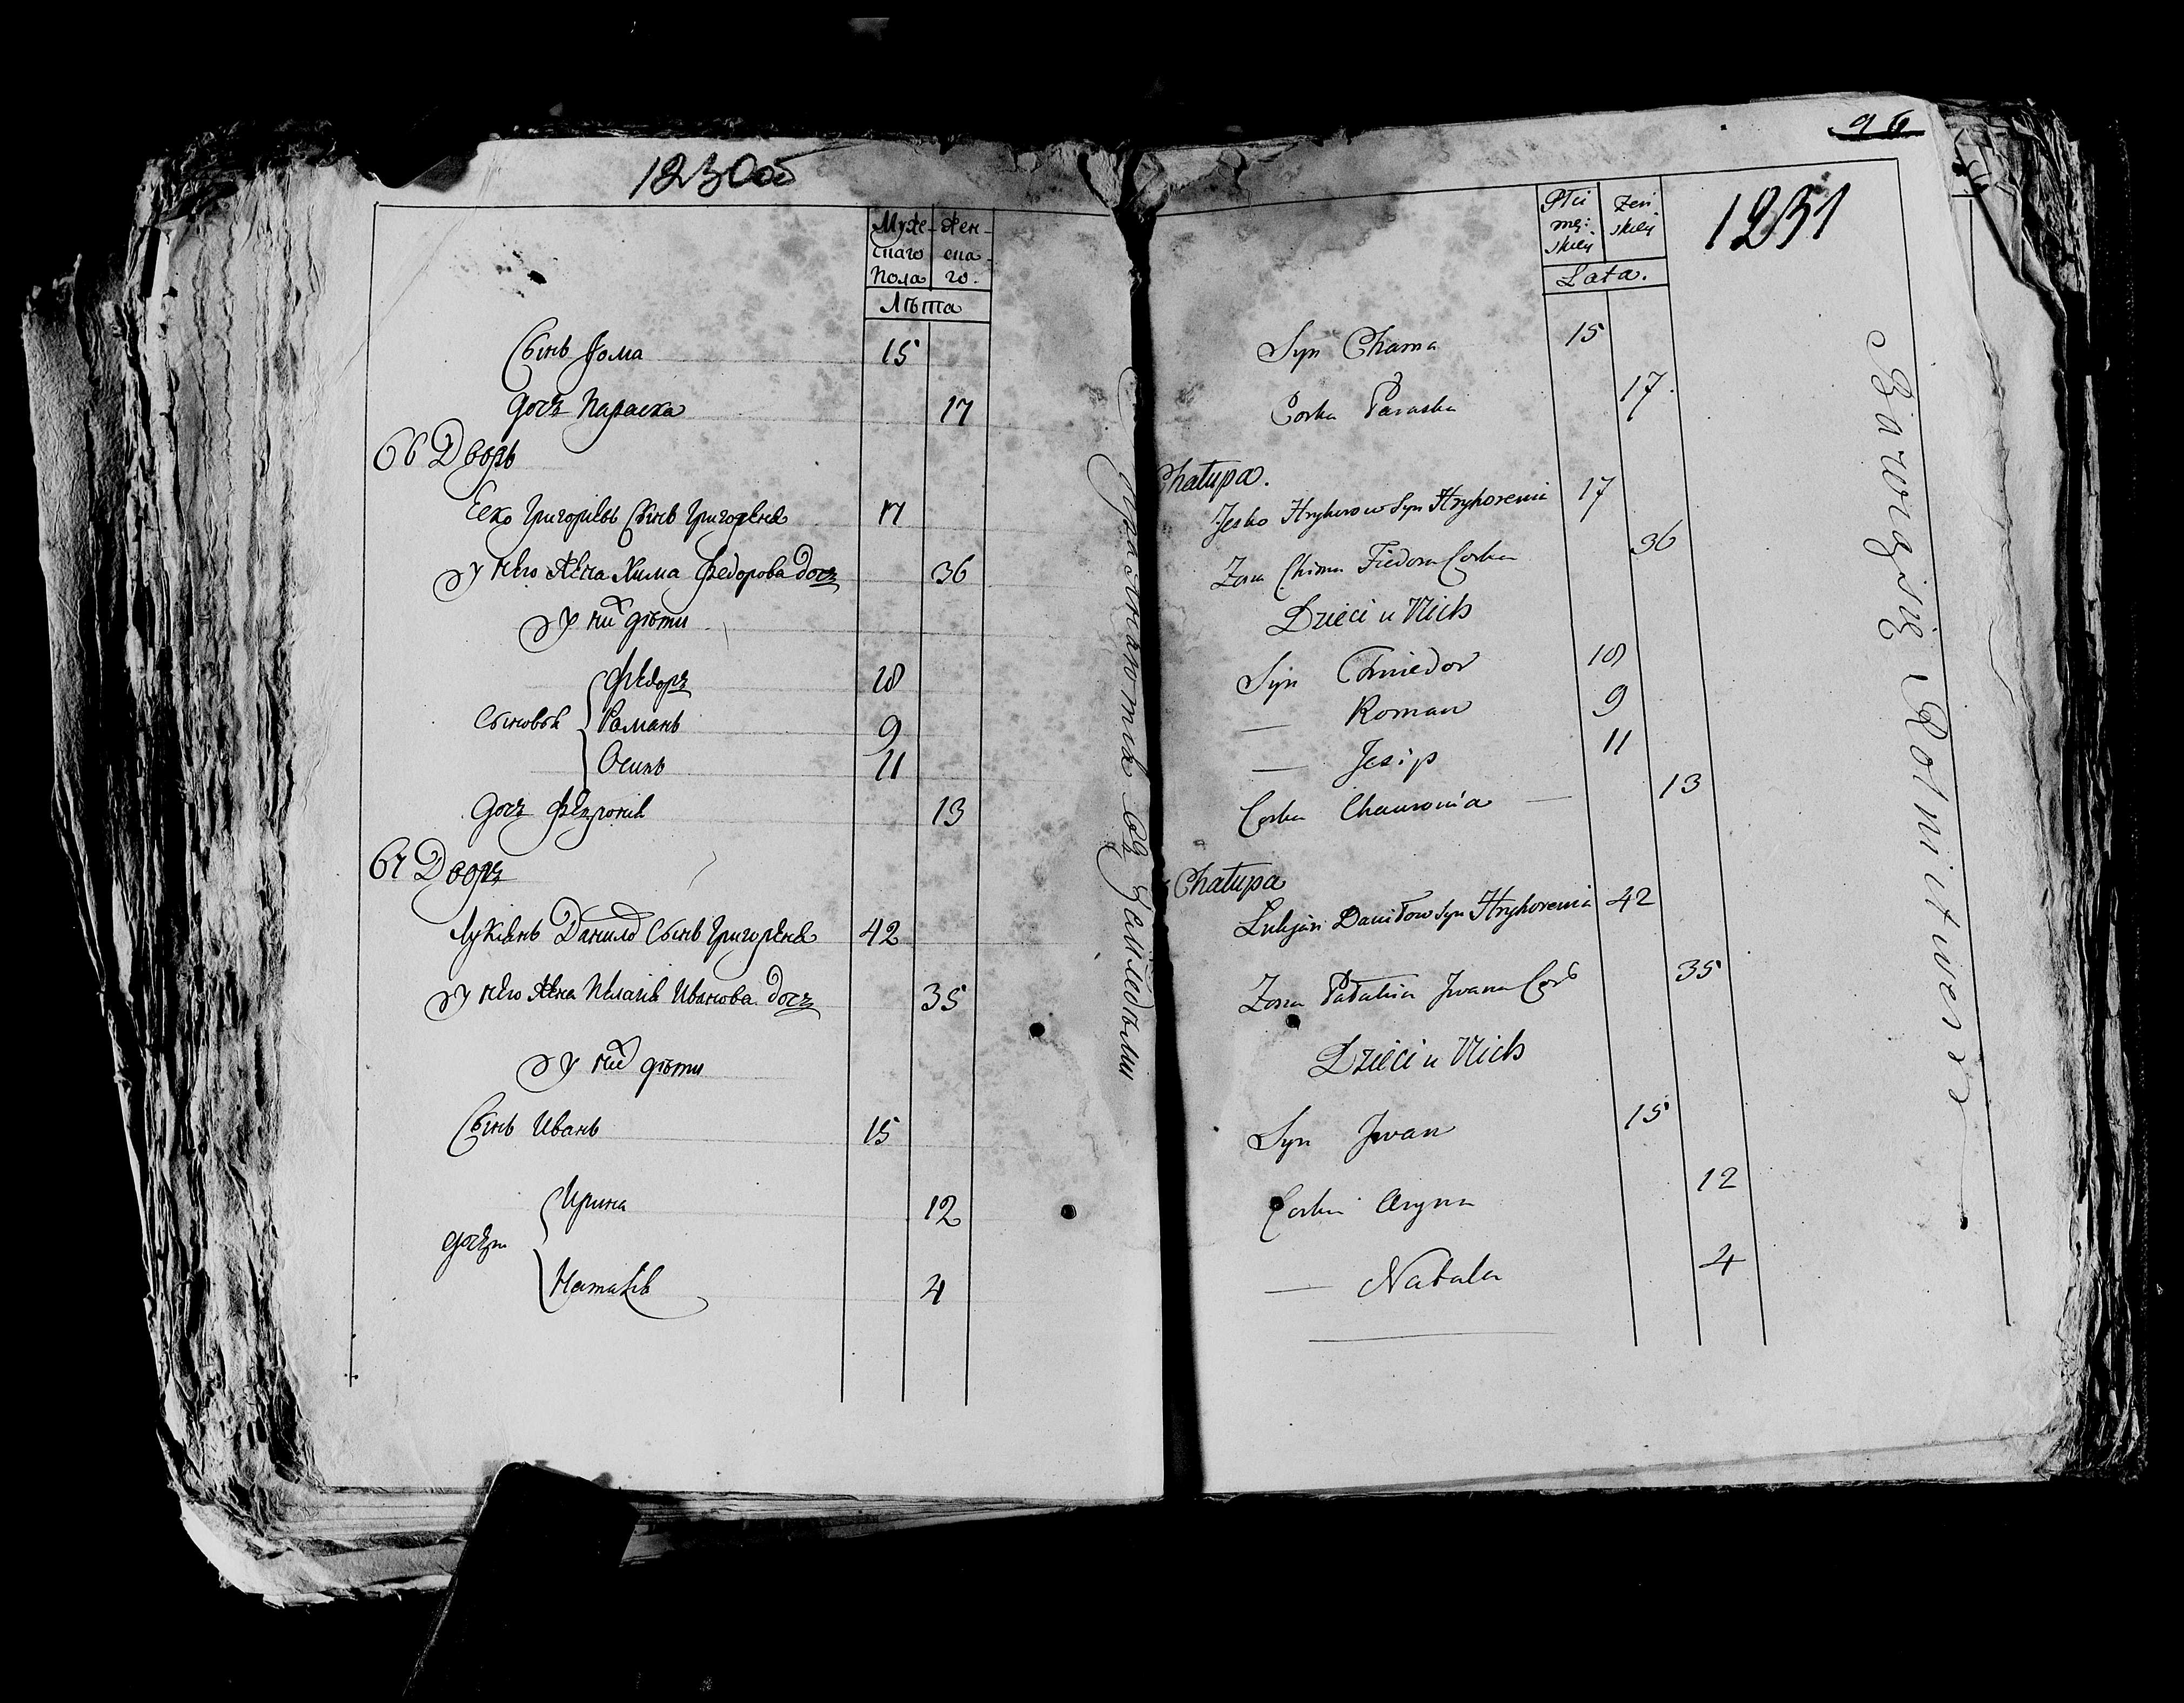 1230 об
Муже-
скаго
Пола
Жен-
ска-
го.
Лѣта
Сынъ Фома 15
Дочъ Параска 17
66 Дворъ
Еско Григорьевъ Сынъ Григореня 17
у него Жена Хима Федорова дочъ 36
у них дѣти
Сыновья
Федоръ 18
Романъ 9
Осипъ 11
Дочъ Февронія 13
67 Дворъ
Лукянъ Данилов Сынъ Григореня 42
у него Жена Пелагія Иванова дочъ 35
у них дѣти
Сынъ Иванъ 15
дочери
Ирина 12
Наталія 4
земледѣлии
96
1231
Płci
męż:
skiey
Żeń
skiey
Lata.
Syn Chama 15
Corka Paraska 17.
Chałupa.
Jesko Hryhorow Syn Hryhorenia 17
Zona Chima Fiedora Corka 36
Dzieci u Nich
Syn Chwiedor 18
— Roman 9
— Jesip 11
Corka Chauronia — 13
Chałupa
Lukjan Daniłow Syn Hryhorenia 42
Zona Pałahia Jwana Cor 35
Dzieci u Nich
Syn Jwan 15
Corka Aryna 12
— Natala 4
Bawią się Rolnictwem